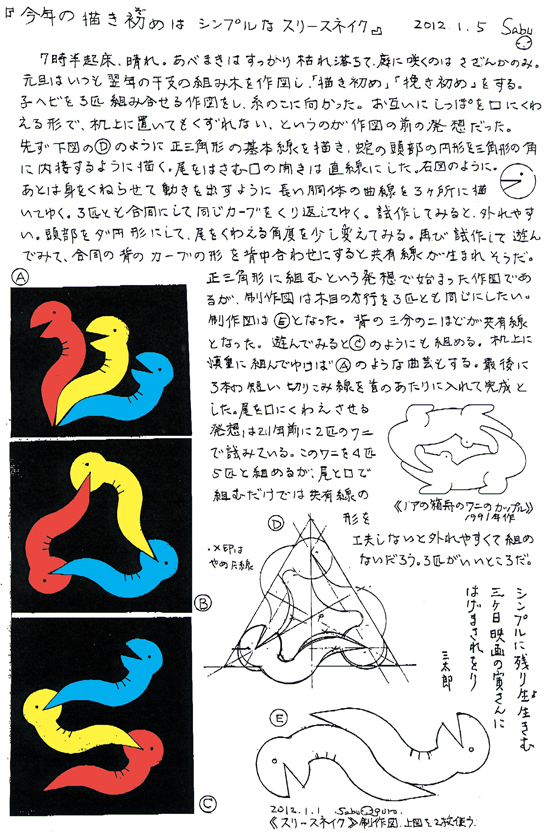 『今年の描き初めは シンプルな スリースネイク』 2012.1.5 Sabu
7時半起床、晴れ。あべまきはすっかり枯れ落ちて、庭に咲くのは さざんかのみ。
元旦はいつも翌年の干支の組み木を作図し、「描き初め」「挽き初め」をする。
子ヘビを3匹組み合せる作図をし、糸のこに向かった。お互いに しっぽを口にくわ
える形で、机上に置いてもくずれない、というのが作図の前の発想だった。
先ず下図のⒹのように正三角形の基本線を描き、蛇の頭部の円形を三角形の角
に内接するように描く。尾をはさむ口の開きは直線にした。右図のように。
あとは身をくねらせて動きを出すように長い胴体の曲線を3ヶ所に描
いてゆく。3匹とも合同にして同じカーブをくり返してゆく。試作してみると、外れやす
い。頭部をダ円形にして、尾をくわえる角度を少し変えてみる。再び試作して遊ん
でみて、合同の背のカーブの形を背中合わせにすると共有線が生まれそうだ。
正三角形に組むという発想で始まった作図であ
るが、制作図は木目の方行を3匹とも同じにしたい。
制作図はⒺとなった。背の三分の二ほどが共有線
となった。遊んでみるとⒸのようにも組める。机上に
慎重に組んでゆけばⒶのような曲芸もする。最後に
3本の短い切りこみ線を首のあたりに入れて完成と
した。尾を口にくわえさせる
発想は21年前に2匹のワニ
で試みている。このワニを4匹
5匹と組めるが、尾と口で
組むだけでは共有線の
形を
工夫しないと外れやすくて組め
ないだろう。3匹がいいところだ。
《ノアの箱舟のワニのカップル》
1991年作
Ⓐ
Ⓑ
Ⓒ
Ⓓ
・×印は
やめた線
Ⓔ
シンプルに残り生生きむ
三ヶ日映画の寅さんに
はげまされをり
三太郎
2012.1.1 Sabu guro.
《スリースネイク》制作図.上図を2枚使う.